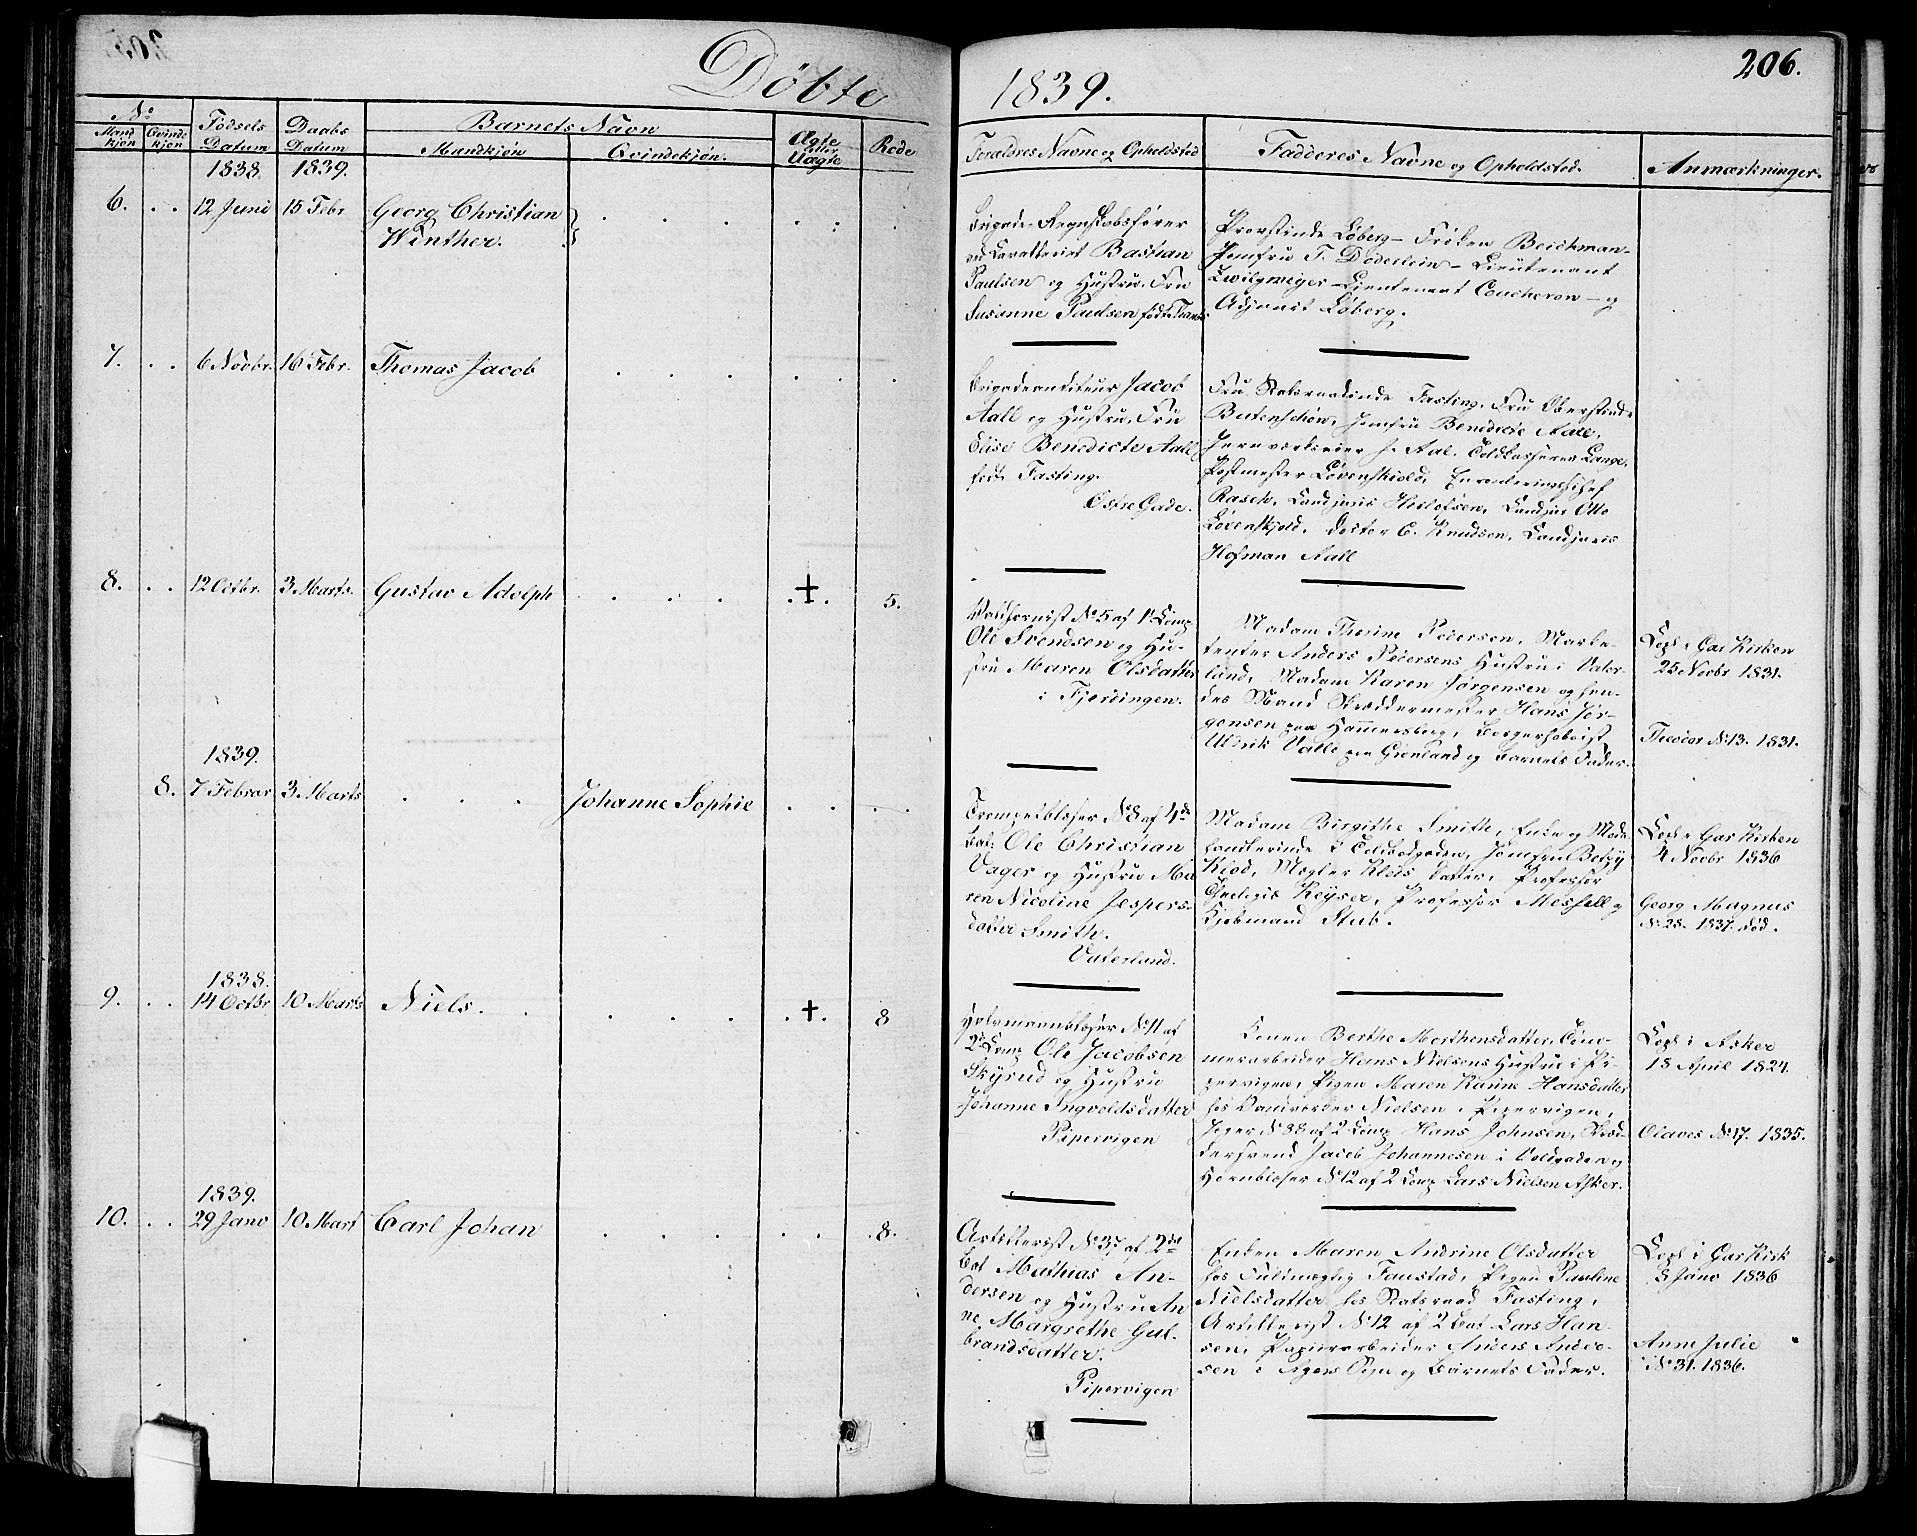 Döbte
1839.
206.
No
Mand kjön
Qvinde kjön
Födsels Datum
Daabs Datum
Barnets Navn
Mandkjön
Qvindekjön.
Ægte eller Uægte
Rode
Foraldres Navne og Opholdsted
Fadderes Navne og Opholdsted.
Anmærkninger.
1838. 1839.
6. 12 Juni 15 Febr Georg Christian
Winther.
Brigade-Regnskabsfører
ved Cavalleriet Bastian
Paulsen og Hustru, Fru
Susanne Paulsen født
Provstinde Løberg - Frøken Beichman-
Jomfru T. Døderlein - Lieutenant
Zwilgmeyer - Lieutenant Coucheron - og
Adjunct Løberg.
7. 6 Novbr. 16 Febr. Thomas Jacob
Brigadeauditeur Jacob
Aall og Hustru, Fru
Elise Benedicte Aall
født Fasting.
Østre Gade.
Fru Statsraadinde Fasting, Fru Oberstinde
Butenschøn, Jomfru Benedicte Aall,
Jernværkseier J. Aal, Toldkasserer Lange,
Postmester Løvenskiold,
Rasch, Candjuris Herlofsen, Candjur Otto
Løvenskjold, Doctor C. Knudsen, Candjuris
Hofman Aall
8. 12 Octbr. 3 Marts. Gustav Adolph + 5.
Valdhornist No 5 af 1 Comp
Ole Svendsen og Hu-
stru Maren Olsdatter
i Fjerdingen.
Madam Thorine Pedersen, Marke-
tenter Anders Pedersens Hustru i Vater-
land, Madam Karen Jørgensen og hen-
des Mand Skræddermester Hans Jør-
gensen paa Hammersborg, Borgerhoboist
Uldrik Valle paa Grønland og Barnets Fader.
Copl i Gar Kirken
25 Novbr 1831.
Theodor No 13. 1831.
1839.
8. 7 Februar 3 Marts Johanne Sophie
Trompetblæser No 8 af 4de
Bat: Ole Christian
Vager og Hustru Ma
ren Nicoline Jespers-
datter Smith.
Vaterland.
Madam Birgithe Smith, Enke og Mode
handlerinde i Toldbodgaden, Jomfru Betzy
Klod, Mægler Klods Datter, Professor
Keyser, Professor Messell og
Kjøbmand Stub.
Copl i Gar Kirken
4 Novbr 1836
Georg Magnus
No 28. 1837. død.
1838.
9. 14 Octbr 10 Marts Niels. + 8
Halvmaanblæser No 11 af
2 Comp Ole Jacobsen
Skyrud og Hustru
Johanne Ingvoldsdatter
Pipervigen
Konen Berthe Morthensdatter, Tøm-
merarbeider Hans Nielsens Hustru i Pi-
pervigen, Pigen Maren Karine Hansdatter
hos Nielsen i Pipervigen,
Jæger No 88 af 2 Comp Hans Johnsen, Skræd-
dersvend Jacob Johannesen i Voldgaden og
Hornblæser No 12 af 2 Comp Lars Nielsen Asker.
Copl i Asker
18 April 1824.
Olaves No 17. 1835.
1839.
10. 29 Janv 10 Mart Carl Johan 8.
Artillerist No 37 af 2de
Bat Mathias An-
dersen og Hustru An
ne Margrethe Gul-
brandsdatter.
Pipervigen
Enken Maren Andrine Olsdatter
hos Fuldmægtig Faustad, Pigen Pauline
Nielsdatter hos Statsraad Fasting,
Artillerist No 12 af 2 Bat Lars Han-
sen, Papirarbeider Anders Ander-
sen i Agers Sogn og Barnets Fader.
Copl i Gar Kirk
8 Janv 1836
Anne Julie
No 31. 1836.